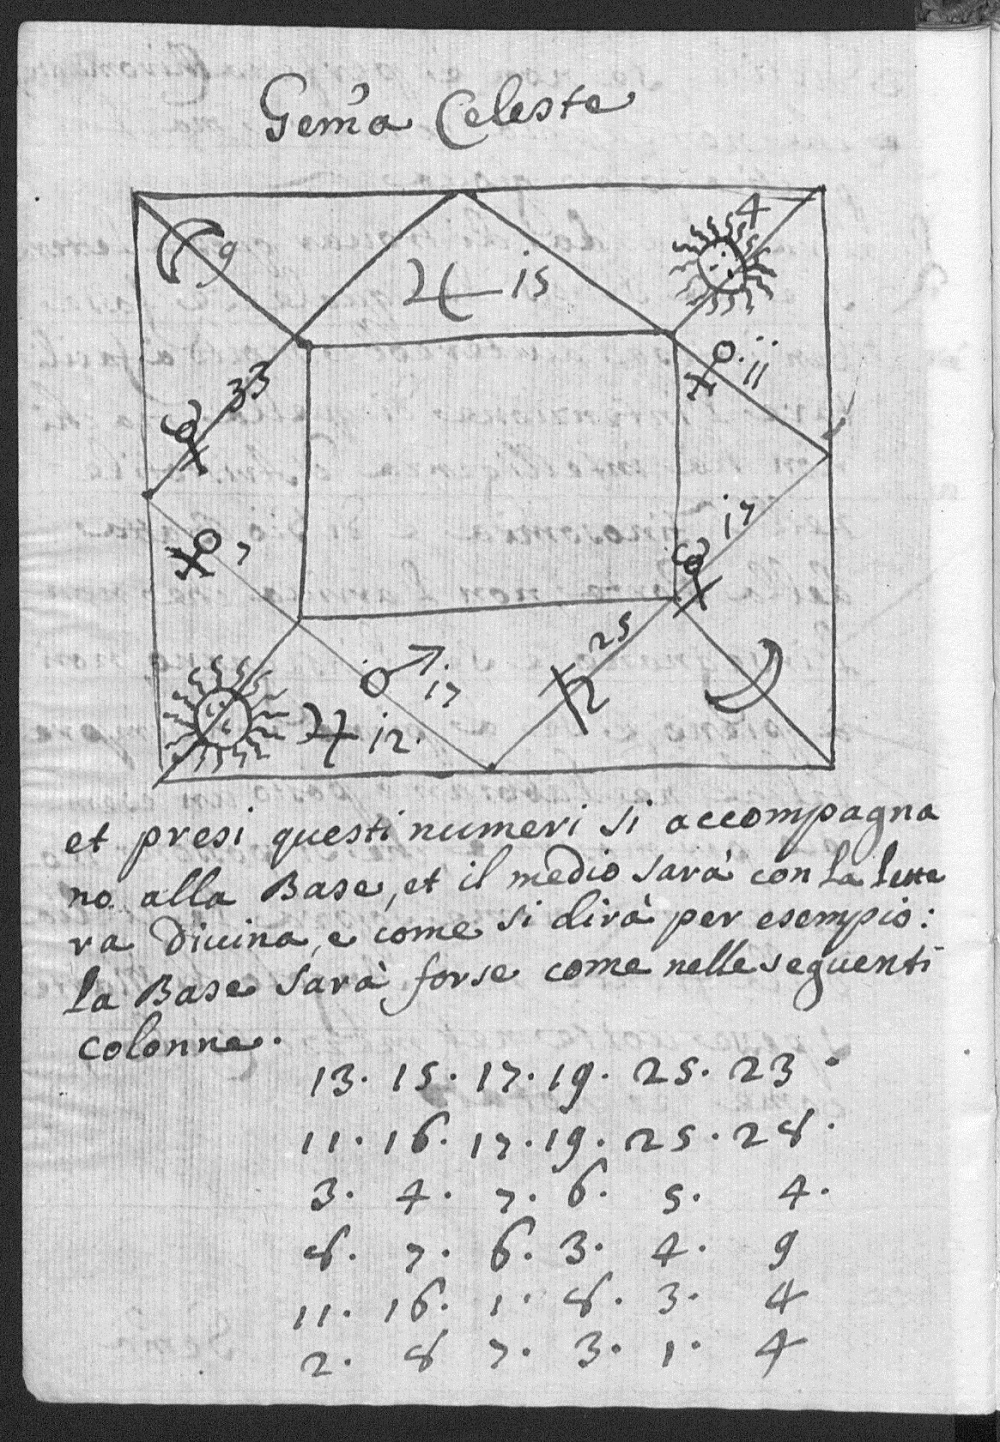 Gem̃a Celeste
☽ 9
♃ 15
☉ 4
♀ 11
☿ 33
☿ 17
♀ 7
♂ 17
♄ 25
☽
☉ ♃ 12.
et presi questi numeri si accompagna
no alla Base, et il medio sarà con la lette
ra Divina, e come si dirà per esempio:
la Base sarà forse come nelle seguenti
colonne.
13. 15. 17. 19. 25. 23.
11. 16. 17. 19. 25. 28.
3. 4. 7. 6. 5. 4.
8. 7. 6. 3. 4. 9
11. 16. 1. 8. 3. 4
2. 8 7. 3. 1. 4